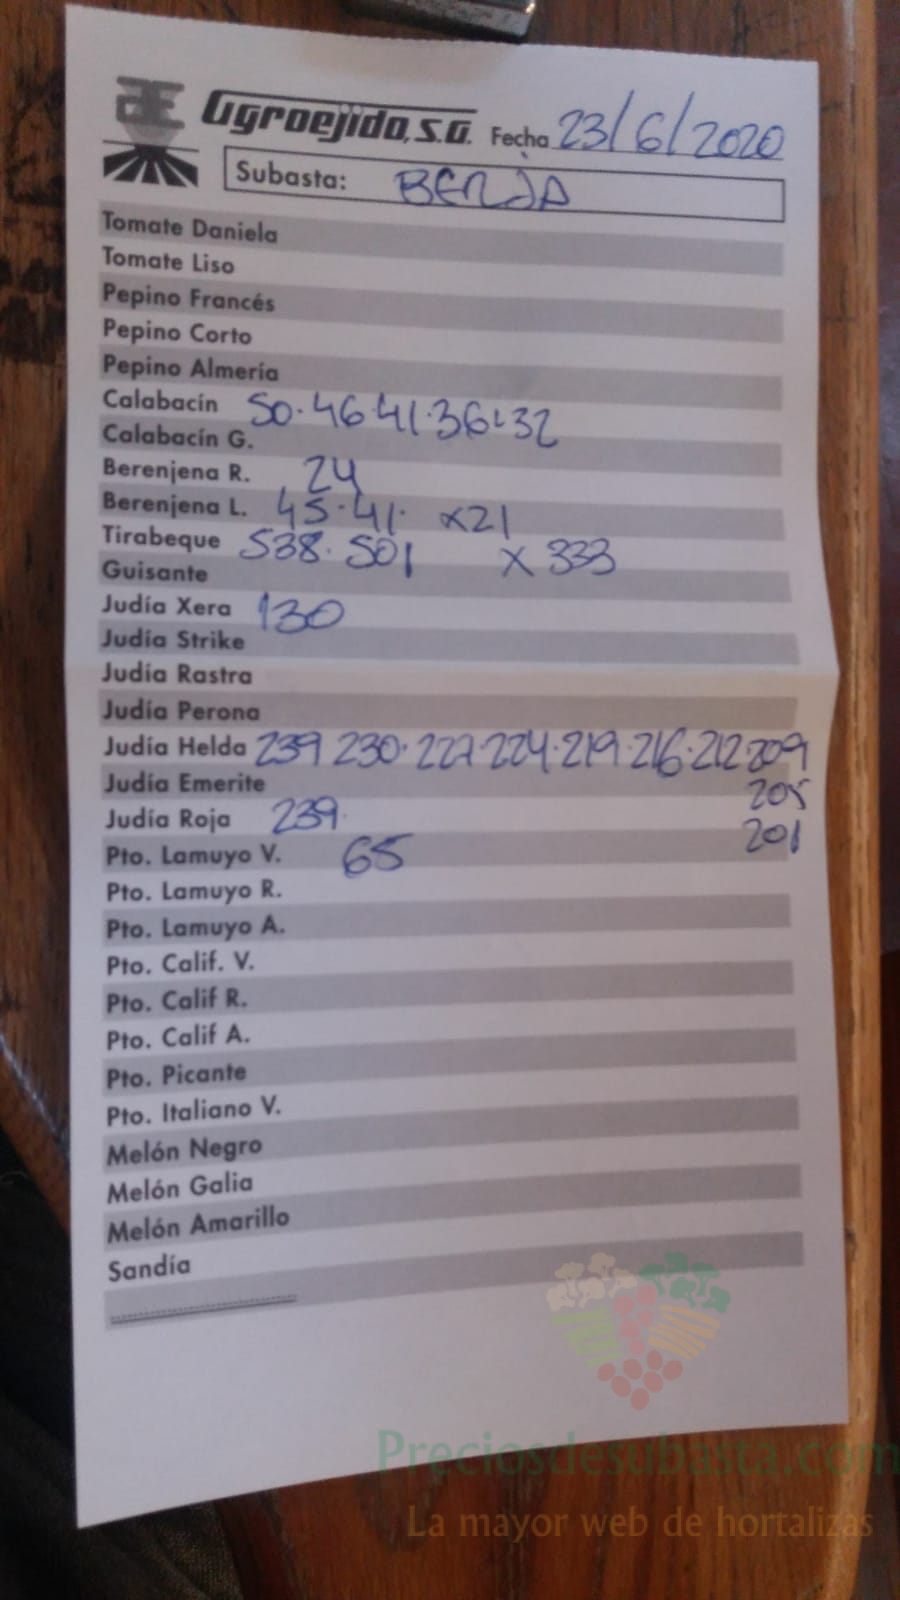 AE Agroejido, S.A. Fecha 23/6/2020
Subasta: BERJA
Tomate Daniela
Tomate Liso
Pepino Francés
Pepino Corto
Pepino Almería
Calabacín 50·46·41·36·32
Calabacín G.
Berenjena R. 24
Berenjena L. 45·41· x21
Tirabeque 538·501 x 333
Guisante
Judía Xera 130
Judía Strike
Judía Rastra
Judía Perona
Judía Helda 239 230·227·224·219·216·212·209
Judía Emerite 205
Judía Roja 239· 201
Pto. Lamuyo V. 65
Pto. Lamuyo R.
Pto. Lamuyo A.
Pto. Calif. V.
Pto. Calif R.
Pto. Calif A.
Pto. Picante
Pto. Italiano V.
Melón Negro
Melón Galia
Melón Amarillo
Sandía
Preciosdesubasta.com
La mayor web de hortalizas